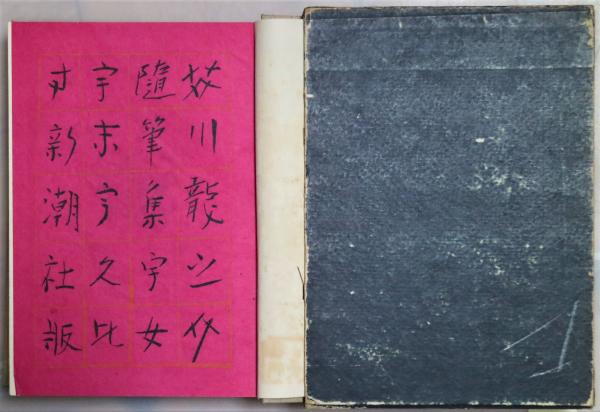 芥川龍之介
隨筆集宇女
宇末宇久比
寸新潮社版